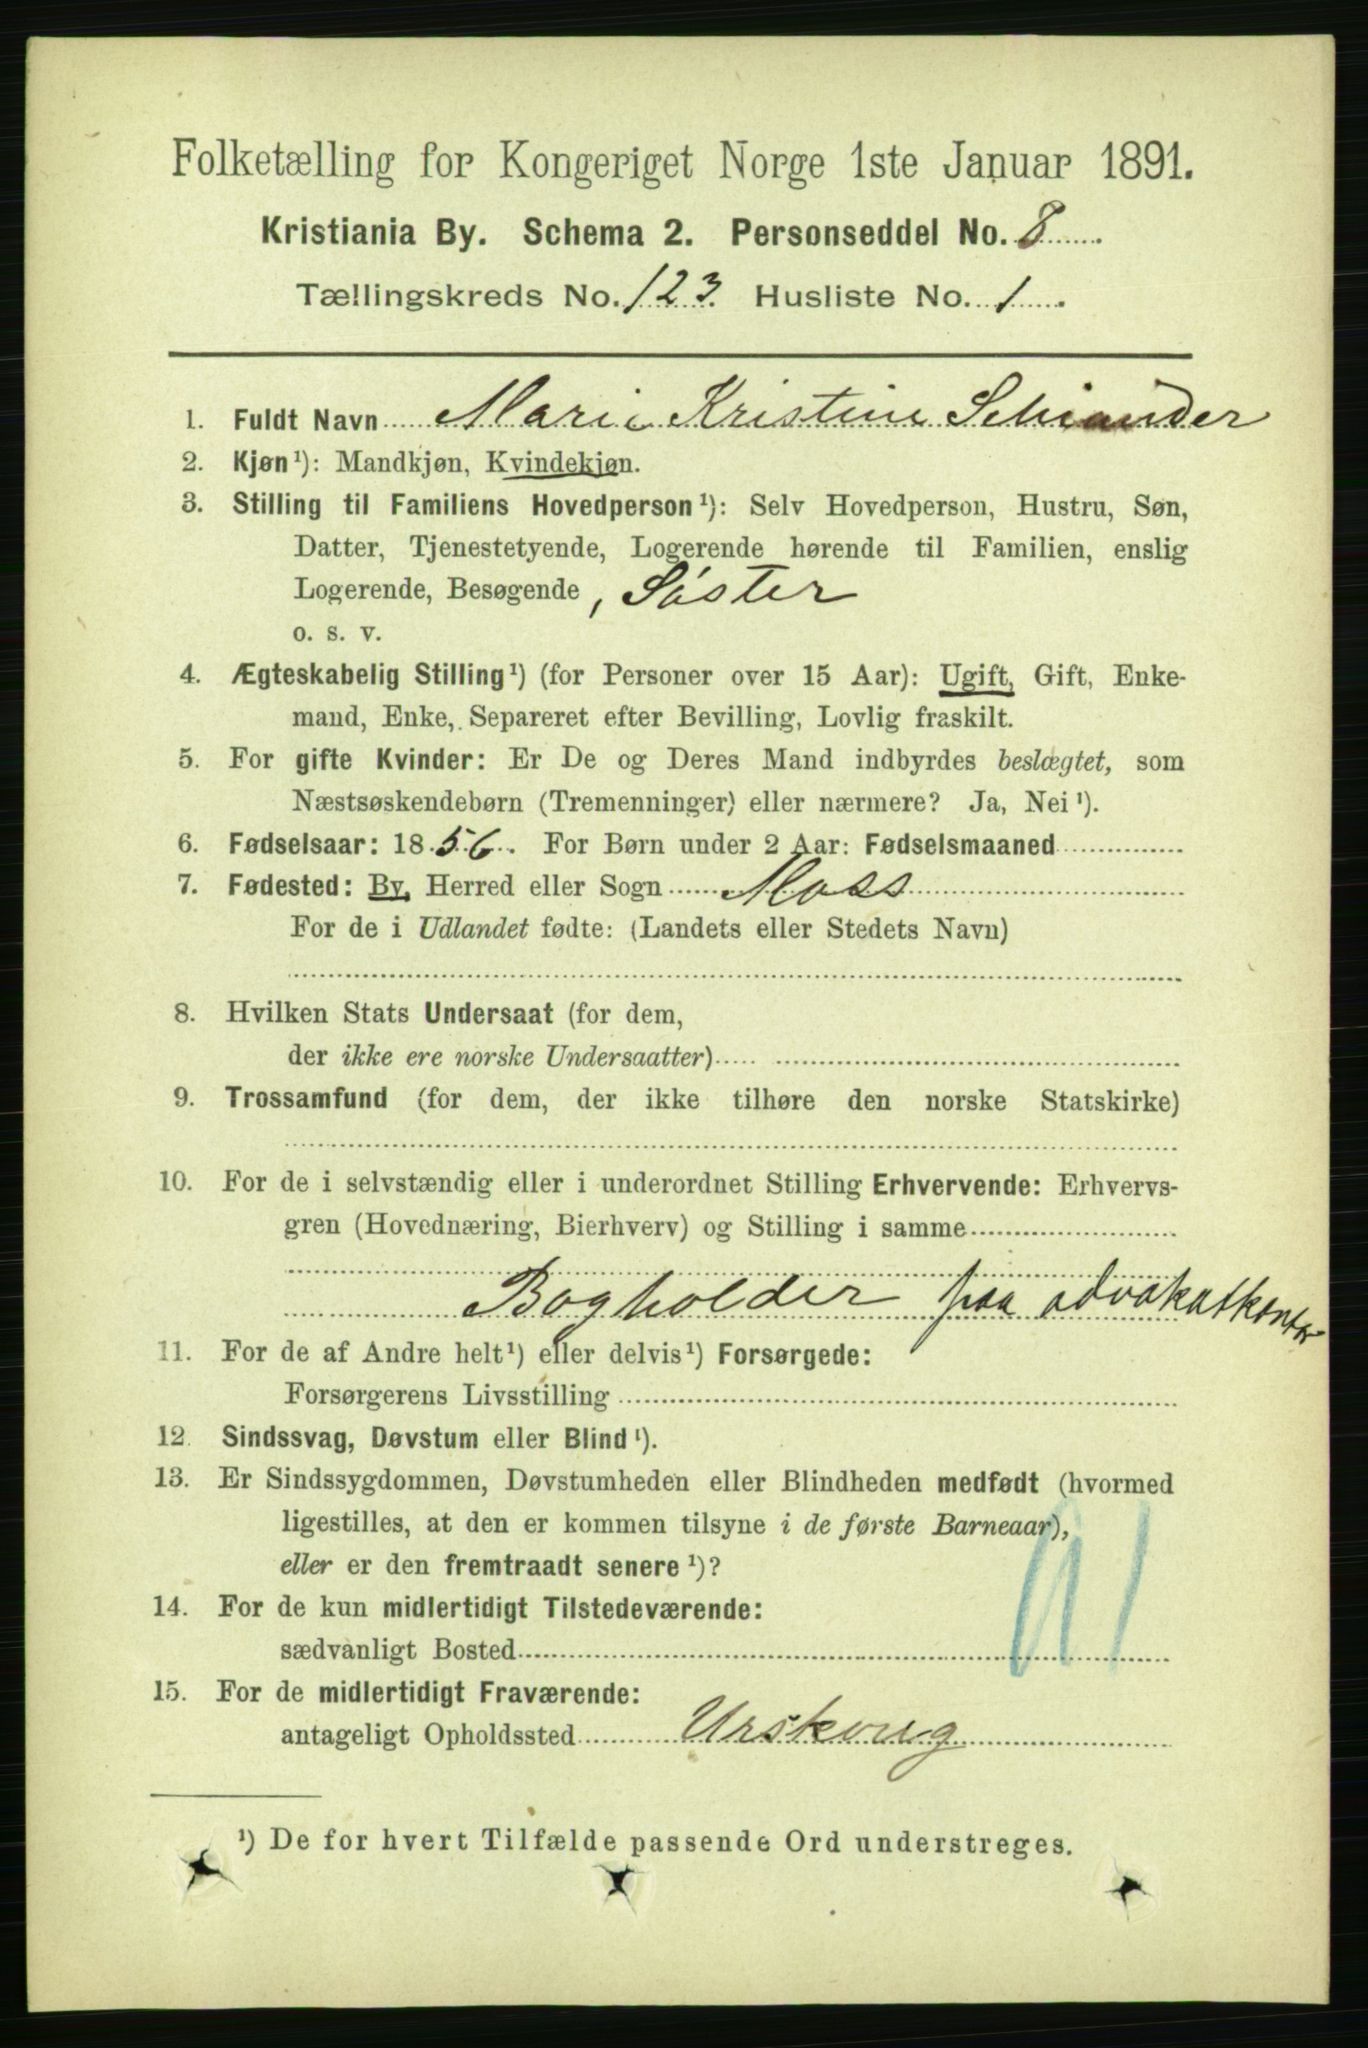 Folketælling for Kongeriget Norge 1ste Januar 1891.
Kristiania By. Schema 2. Personseddel No. 8
Tællingskreds No. 123 Husliste No. 1
1. Fuldt Navn Marie Kristine Schiander
2. Kjøn¹): Mandkjøn, Kvindekjøn.
3. Stilling til Familiens Hovedperson¹): Selv Hovedperson, Hustru, Søn,
Datter, Tjenestetyende, Logerende hørende til Familien, enslig
Logerende, Besøgende, Søster
o. s. v.
4. Ægteskabelig Stilling¹) (for Personer over 15 Aar): Ugift, Gift, Enke-
mand, Enke, Separeret efter Bevilling, Lovlig fraskilt.
5. For gifte Kvinder: Er De og Deres Mand indbyrdes beslægtet, som
Næstsøskendebørn (Tremenninger) eller nærmere? Ja, Nei¹).
6. Fødselsaar: 1856. For Børn under 2 Aar: Fødselsmaaned
7. Fødested: By, Herred eller Sogn Moss
For de i Udlandet fødte: (Landets eller Stedets Navn)
8. Hvilken Stats Undersaat (for dem,
der ikke ere norske Undersaatter)
9. Trossamfund (for dem, der ikke tilhøre den norske Statskirke)
10. For de i selvstændig eller i underordnet Stilling Erhvervende: Erhvervs-
gren (Hovednæring, Bierhverv) og Stilling i samme
Bogholder paa advokatkontor
11. For de af Andre helt¹) eller delvis¹) Forsørgede:
Forsørgerens Livsstilling
12. Sindssvag, Døvstum eller Blind¹).
13. Er Sindssygdommen, Døvstumheden eller Blindheden medfødt (hvormed
ligestilles, at den er kommen tilsyne i de første Barneaar),
eller er den fremtraadt senere¹)?
14. For de kun midlertidigt Tilstedeværende:
sædvanligt Bosted
15. For de midlertidigt Fraværende:
antageligt Opholdssted Urskoug
¹) De for hvert Tilfælde passende Ord understreges.